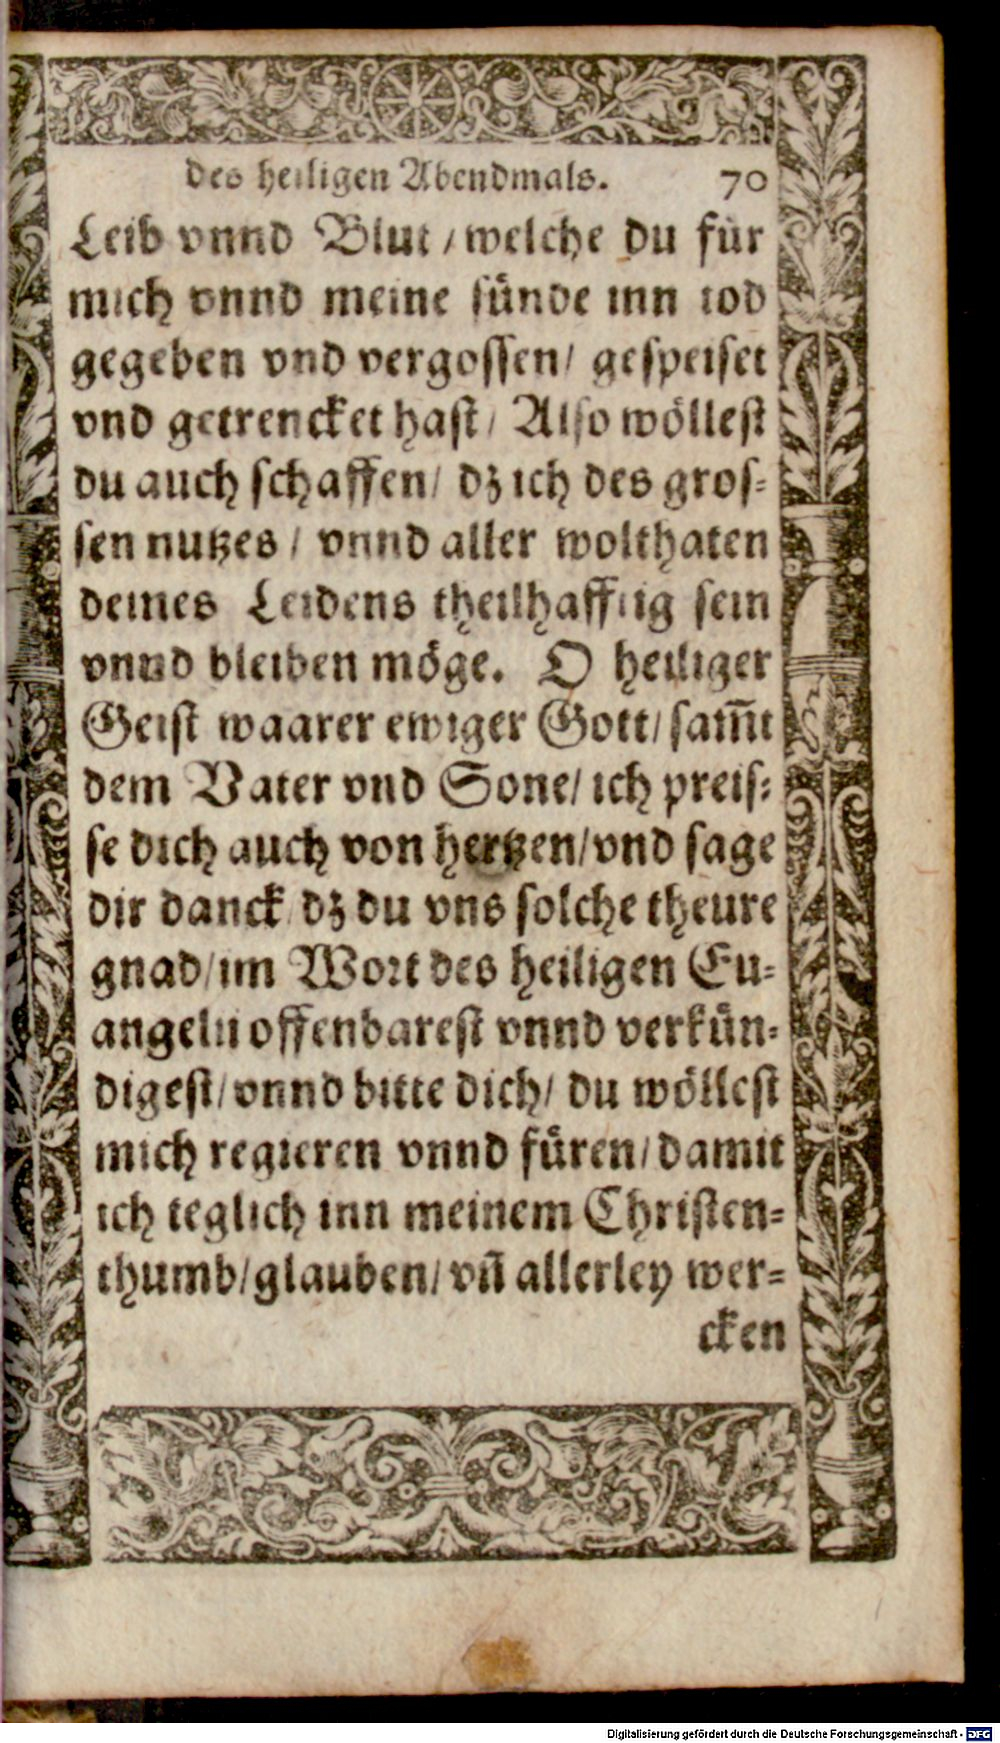 des heiligen Abendmals. 70
Leib vnnd Blut / welche du für
mich vnnd meine sünde inn tod
gegeben vnd vergossen / gespeiset
vnd getrencket hast / Also wöllest
du auch schaffen / dz ich des gros=
sen nutzes / vnnd aller wolthaten
deines Leidens theilhafftig sein
vnnd bleiben möge. O heiliger
Geist waarer ewiger Gott / sam̃t
dem Vater vnd Sone / ich preis=
se dich auch von hertzen / vnd sage
dir danck / dz du vns solche theure
gnad / im Wort des heiligen Eu=
angelii offenbarest vnnd verkün=
digest / vnnd bitte dich / du wöllest
mich regieren vnnd füren / damit
ich teglich inn meinem Christen=
thumb / glauben / vñ allerley wer=
cken
Digitalisierung gefördert durch die Deutsche Forschungsgemeinschaft - DFG